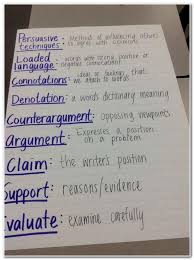 Persuasive - Method of influencing others
techniques: to agree with someone
Loaded - words with strong positive or
language: negative connotations
Connotations: ideas or feelings that
we attach to words
Denotation: a words dictionary meaning
Counterargument: opposing viewpoints
Argument: Expresses a position
on a problem
Claim: the writer's position
Support: reasons/evidence
Evaluate: examine carefully